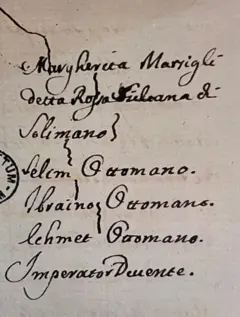 Margherita Marsigli
detta Rosa Sultana di
Solimano
Selim Ottomano.
Ibraino Ottomano.
Echmet Ottomano.
Imperator Vivente.
TUM